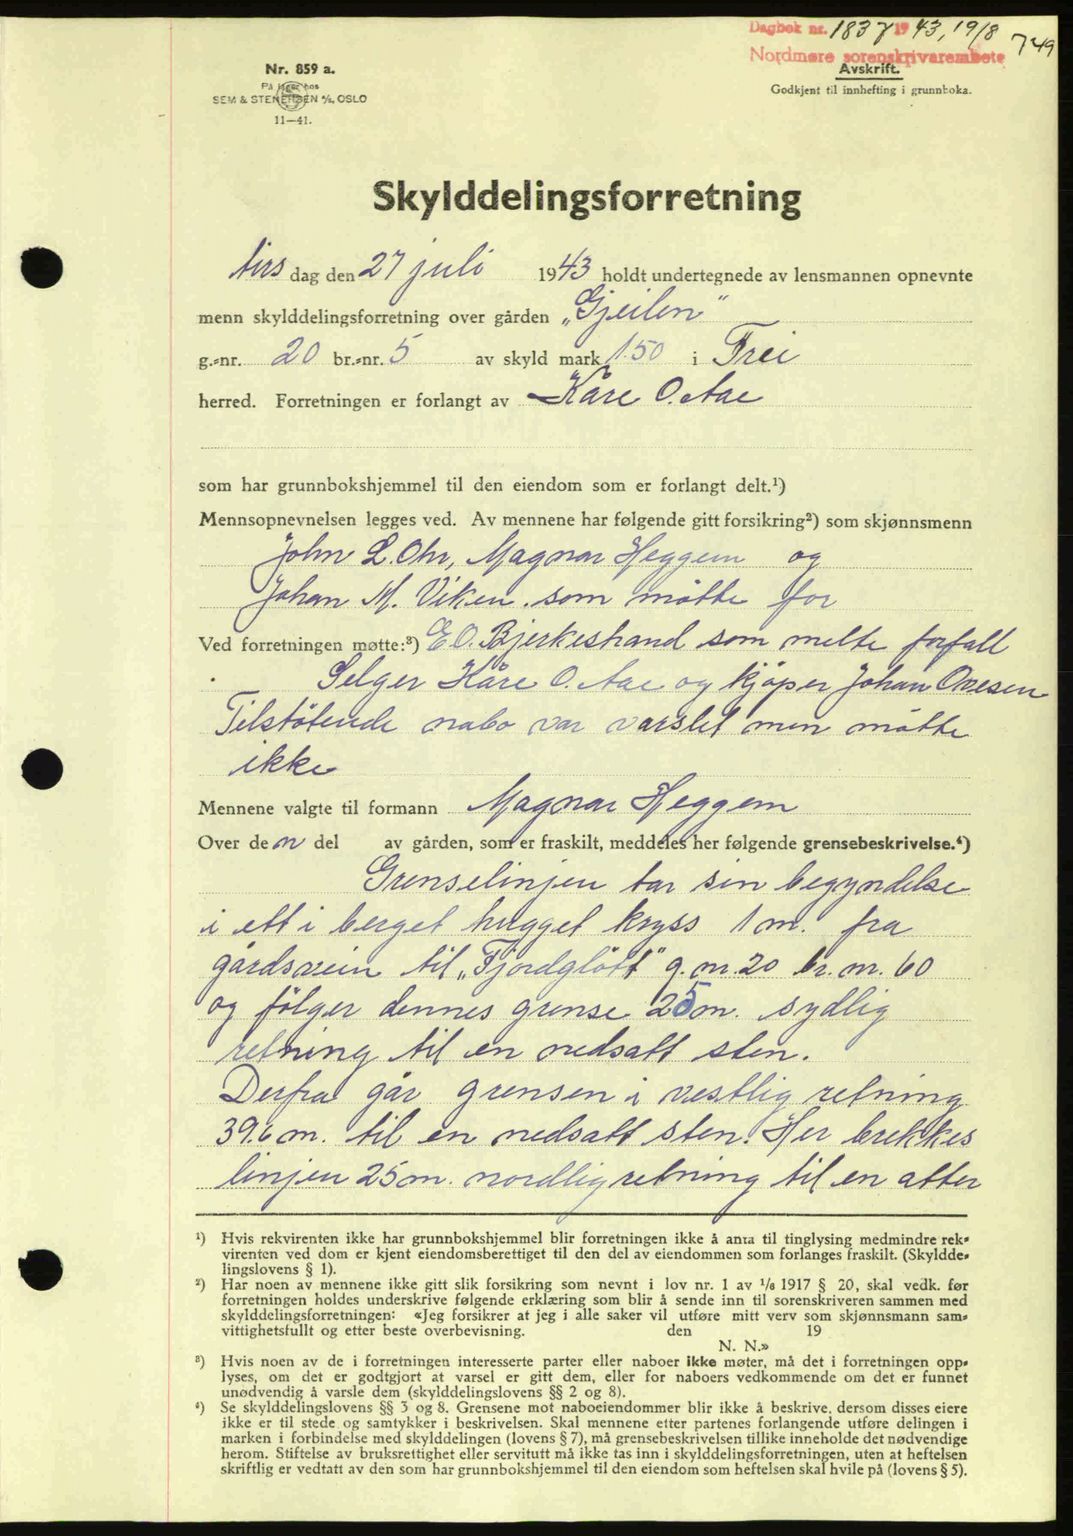 Dagbok nr. 1837 1943, 19/8
749
Nordmøre sorenskrivarembete
Nr. 859 a.
På lager hos
SEM & STENERSEN A/S, OSLO
11—41.
Avskrift.
Godkjent til innhefting i grunnboka.
Skylddelingsforretning
tirs dag den 27 juli 1943 holdt undertegnede av lensmannen opnevnte
menn skylddelingsforretning over gården „Gjeilen“
g.-nr. 20 br.-nr. 5 av skyld mark 1.50 i Frei
herred. Forretningen er forlangt av Kåre O. Aae
som har grunnbokshjemmel til den eiendom som er forlangt delt.¹)
Mennsopnevnelsen legges ved. Av mennene har følgende gitt forsikring²) som skjønnsmenn
John L. Ohr, Magnar Heggem og
Johan M. Viken. som møtte for
Ved forretningen møtte:³) E.O. Bjerkestrand som melte forfall
Selger Kåre O. Aae og kjøper Johan Ovesen
Tilstøtende nabo var varslet men møtte
ikke
Mennene valgte til formann Magnar Heggem
Over den del av gården, som er fraskilt, meddeles her følgende grensebeskrivelse.⁴)
Grenselinjen tar sin begyndelse
i ett i berget hugget kryss 1 m. fra
gårdsvein til „Fjordgløtt“ g.nr. 20 br. nr. 60
og følger dennes grense 25 m. sydlig
retning til en nedsatt sten.
Derfra går grensen i vestlig retning
39.6 m. til en nedsatt sten. Her brekkes
linjen 25 m. nordlig retning til en atter
¹) Hvis rekvirenten ikke har grunnbokshjemmel blir forretningen ikke å anta til tinglysing medmindre rek-
virenten ved dom er kjent eiendomsberettiget til den del av eiendommen som forlanges fraskilt. (Skyldde-
lingslovens § 1).
²) Har noen av mennene ikke gitt slik forsikring som nevnt i lov nr. 1 av 1/6 1917 § 20, skal vedk. før
forretningen holdes underskrive følgende erklæring som blir å sende inn til sorenskriveren sammen med
skylddelingsforretningen: «Jeg forsikrer at jeg i alle saker vil utføre mitt verv som skjønnsmann sam-
vittighetsfullt og etter beste overbevisning. den 19
N. N.»
³) Hvis noen av de i forretningen interesserte parter eller naboer ikke møter, må det i forretningen opp-
lyses, om det er godtgjort at varsel er gitt dem, eller for naboers vedkommende om det er funnet
unødvendig å varsle dem (skylddelingslovens §§ 2 og 8).
⁴) Se skylddelingslovens §§ 3 og 8. Grensene mot naboeiendommer blir ikke å beskrive, dersom disses eiere
ikke er til stede og samtykker i beskrivelsen. Skal mennene etter partenes forlangende utføre delingen i
marken i forbindelse med skylddelingen (lovens § 7), må grensebeskrivelsen tillike inneholde det nødvendige
herom. Stiftelse av bruksrettighet eller servitutt må ikke tas inn i skylddelingsforretningen, uten at heftelsen
skriftlig er vedtatt av den som har grunnbokshjemmel til den eiendom som heftelsen skal hvile på (lovens § 5).